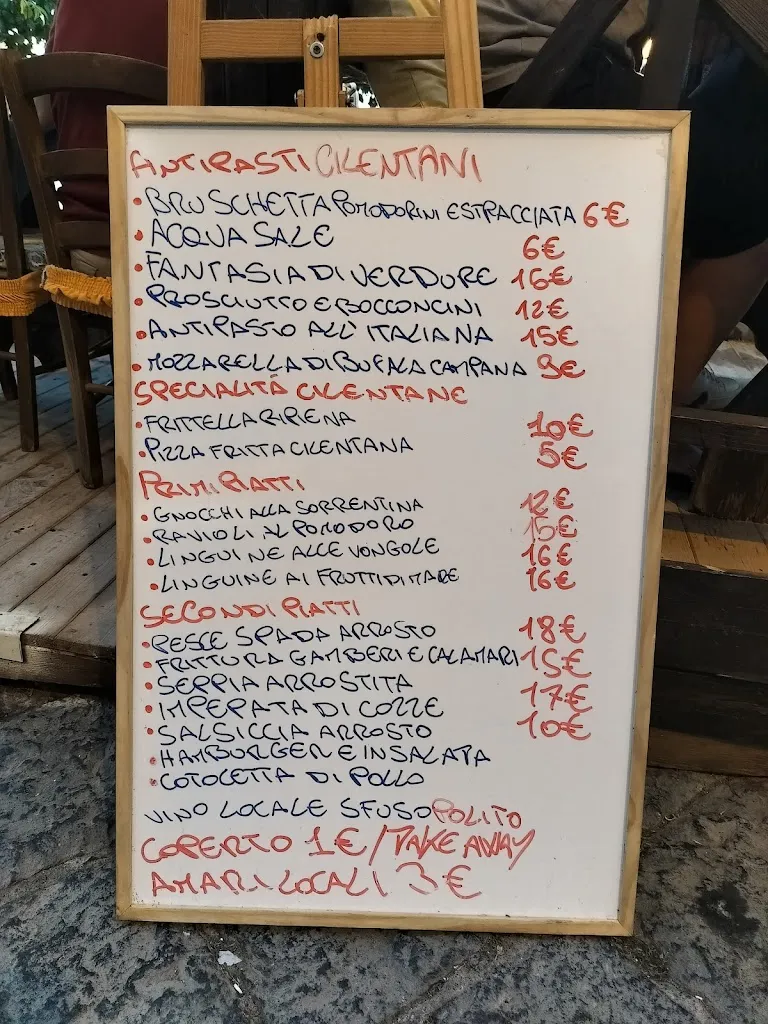 ANTIPASTI CILENTANI
• BRUSCHETTA POMODORINI E STRACCIATA 6€
• ACQUA SALE 6€
• FANTASIA DI VERDURE 16€
• PROSCIUTTO E BOCCONCINI 12€
• ANTIPASTO ALL'ITALIANA 15€
• MOZZARELLA DI BUFALA CAMPANA 9€
SPECIALITÁ CILENTANE
• FRITTELLA RIPIENA 10€
• PIZZA FRITTA CILENTANA 5€
PRIMI PIATTI
• GNOCCHI ALLA SORRENTINA 12€
• RAVIOLI AL POMODORO 15€
• LINGUINE ALLE VONGOLE 16€
• LINGUINE AI FRUTTI DI MARE 16€
SECONDI PIATTI
• PESCE SPADA ARROSTO 18€
• FRITTURA GAMBERI E CALAMARI 15€
• SEPPIA ARROSTITA 17€
• IMPEPATA DI COZZE 10€
• SALSICCIA ARROSTO
• HAMBURGER E INSALATA
• COTOLETTA DI POLLO
VINO LOCALE SFUSO POLITO
COPERTO 1€/TAKE AWAY
AMARI LOCALI 3€